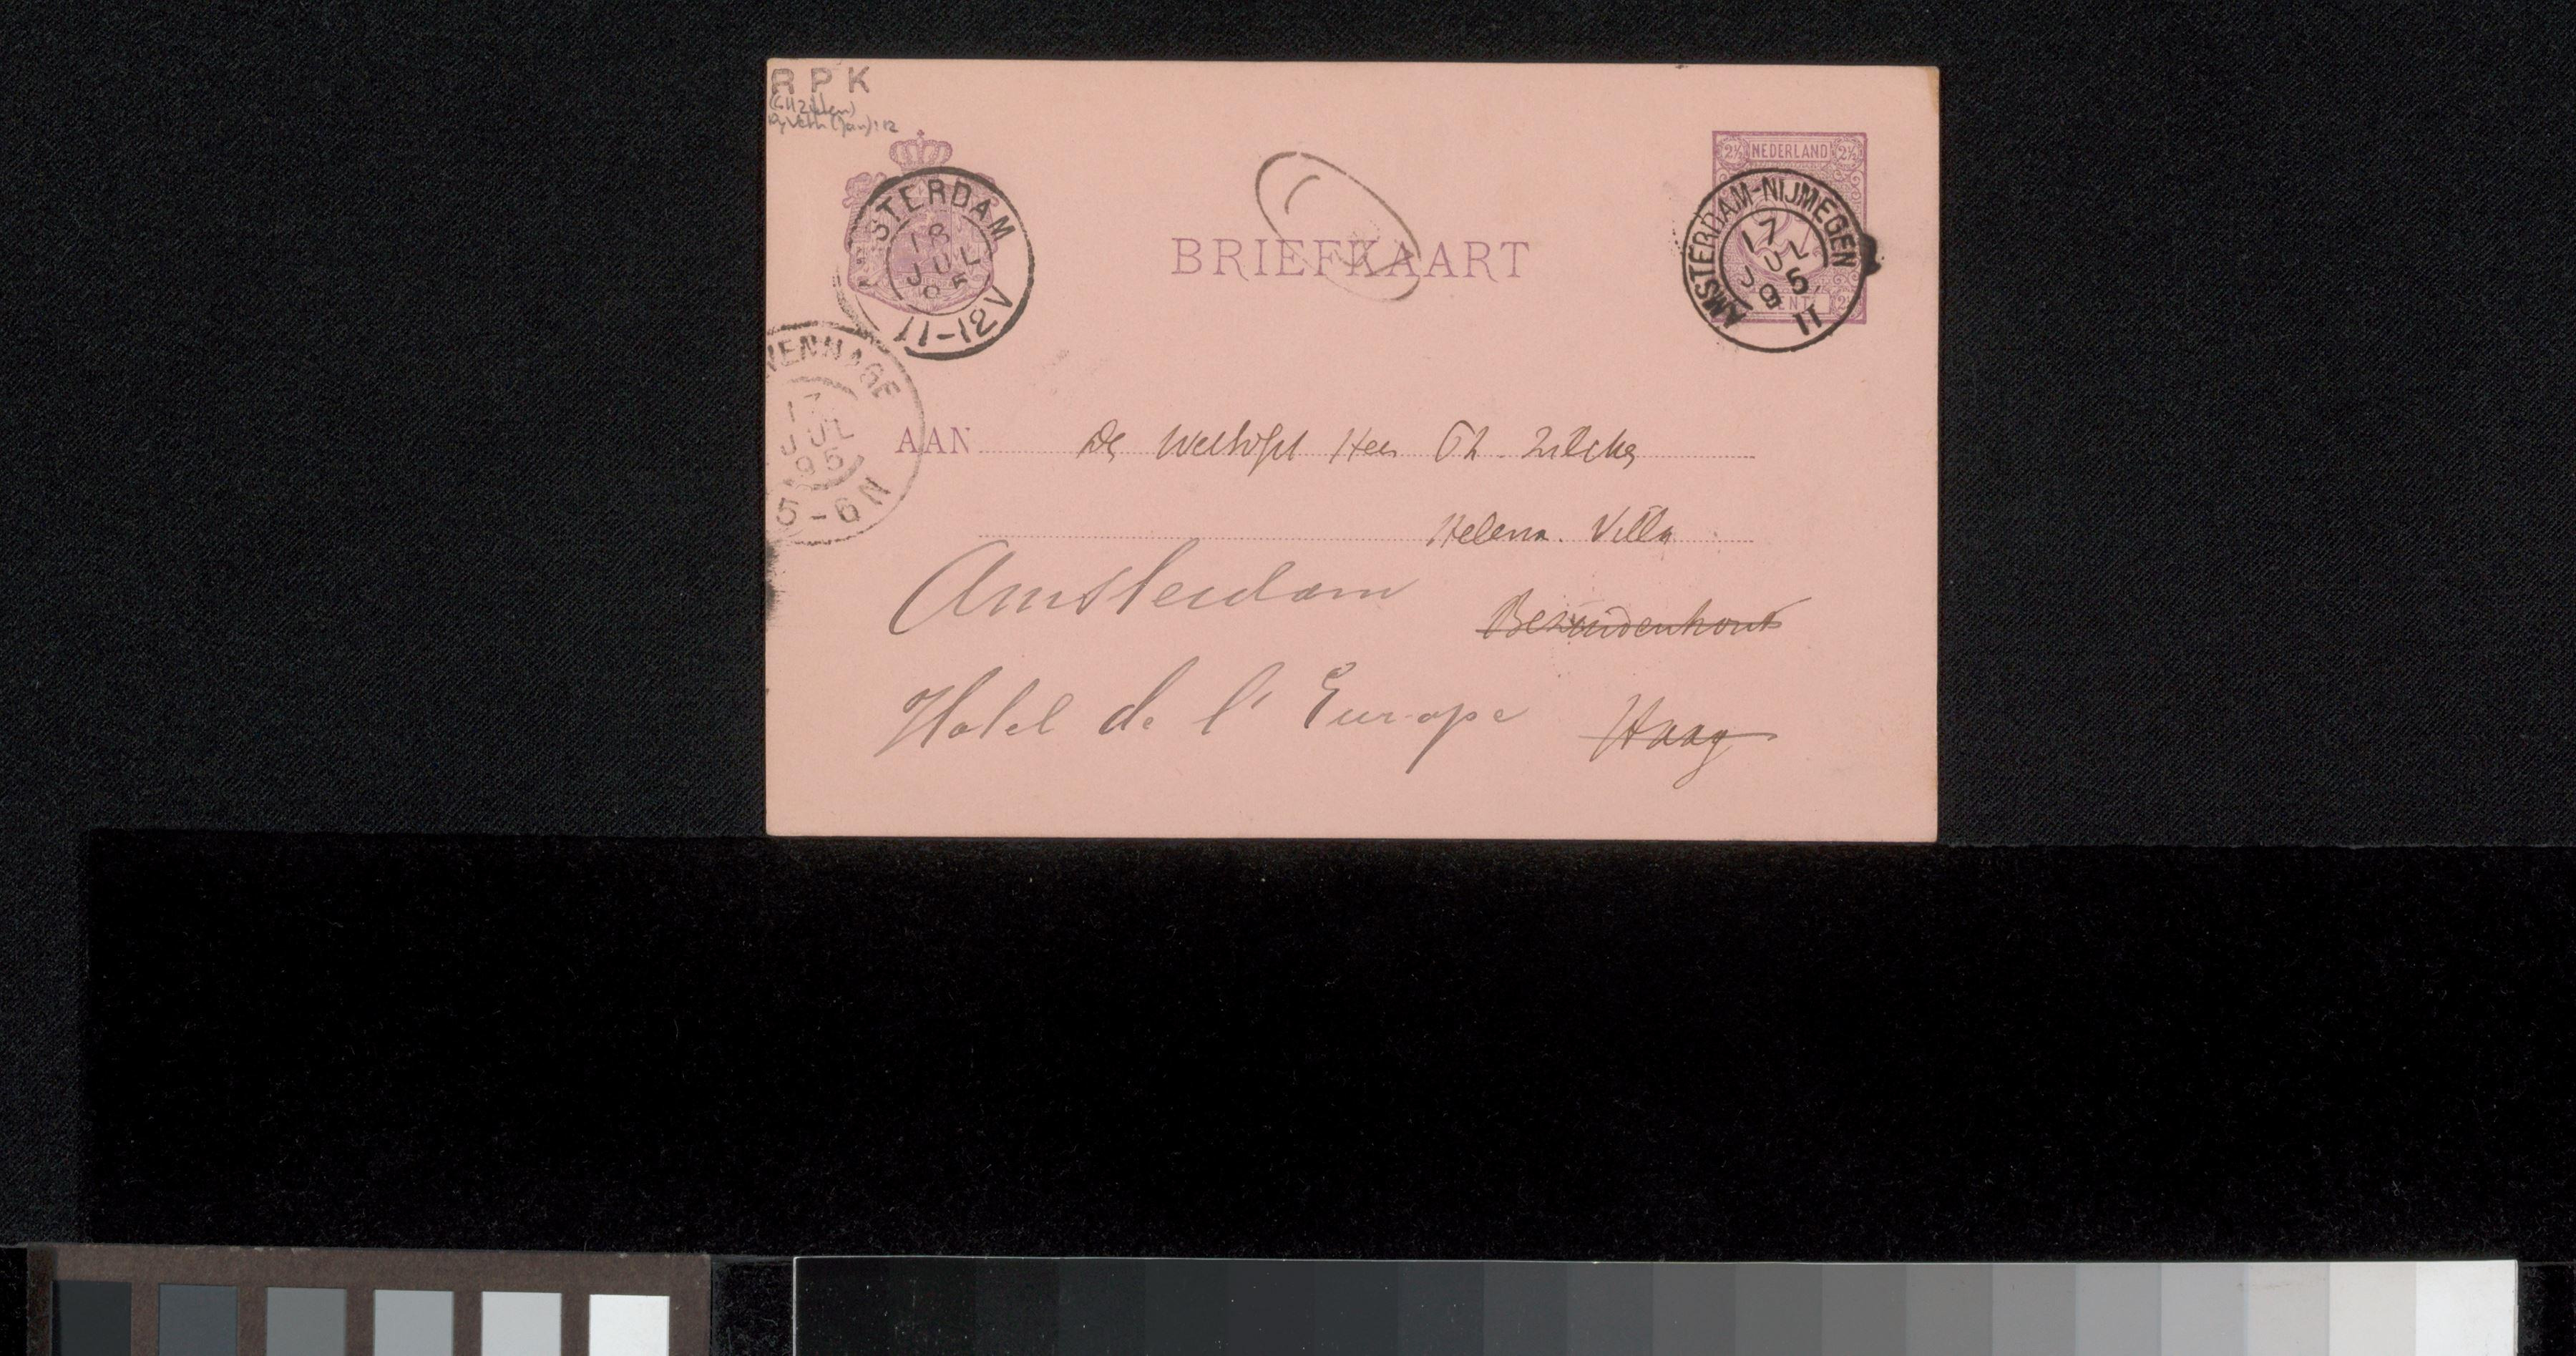 R P K
(Jan) 112
NEDERLAND
2½ 2½
CENT
AMSTERDAM-NIJMEGEN
17
JUL
95
11
STERDAM
18
JUL
95
11-12V
BRIEFKAART
VENHAGE
17
JUL
95
5-6N
AAN De Heer Ph. Zilcken
Helena Villa
Amsterdam
Bezuidenhout
Hotel de l'Europe
Haag